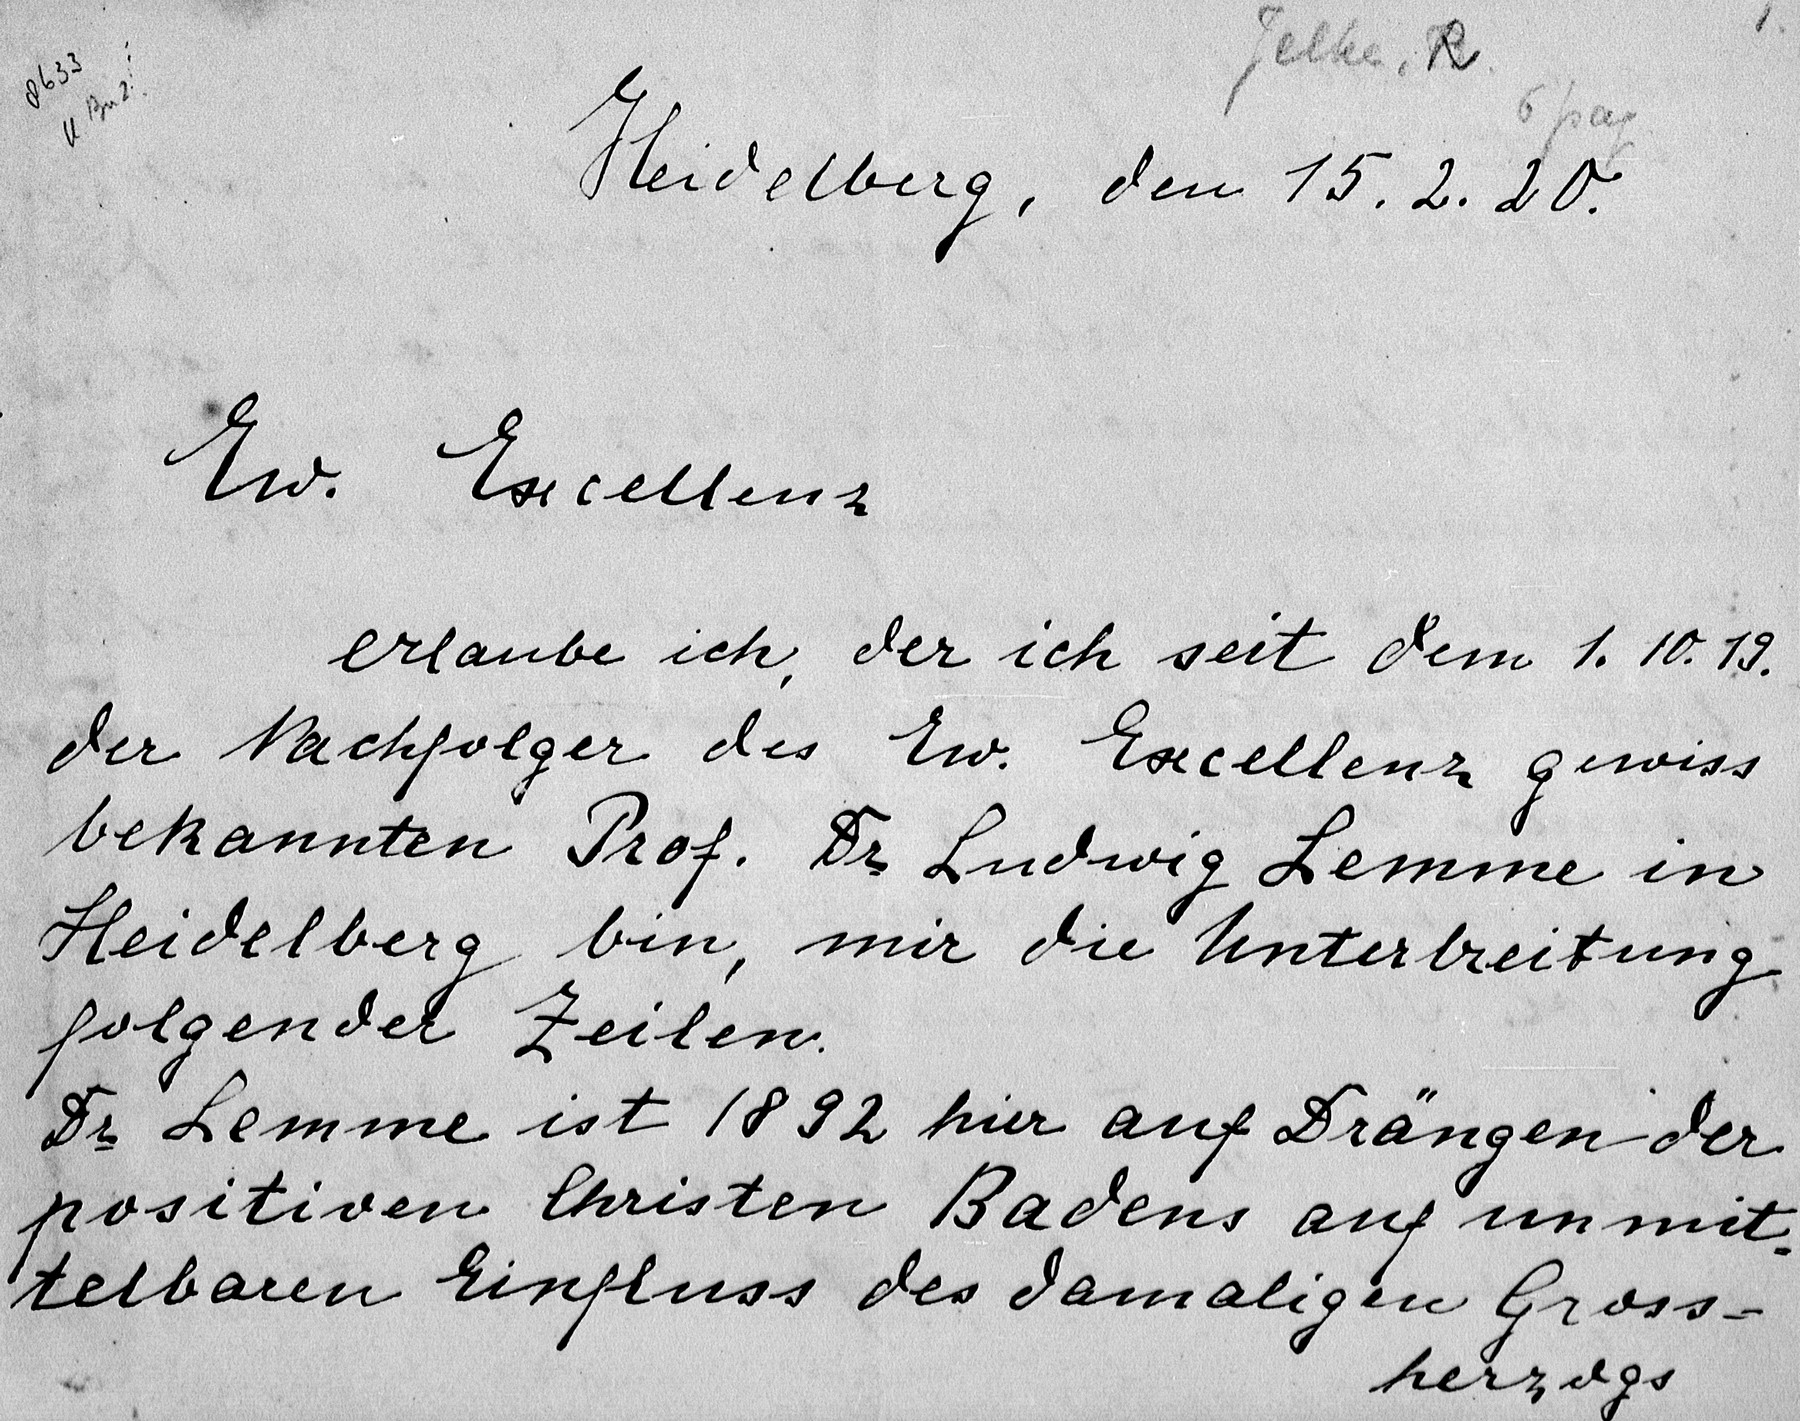 Jelke, R.
1.
8633
6 pag
Heidelberg, den 15. 2. 20.
Ew. Excellenz
erlaube ich, der ich seit dem 1. 10. 19.
der Nachfolger des Ew. Excellenz gewiss
bekannten Prof. Dr Ludwig Lemme in
Heidelberg bin, mir die Unterbreitung
folgender Zeilen.
Dr Lemme ist 1892 hier auf Drängen der
positiven Christen Badens auf unmit-
telbaren Einfluss des damaligen Gross-
herzogs